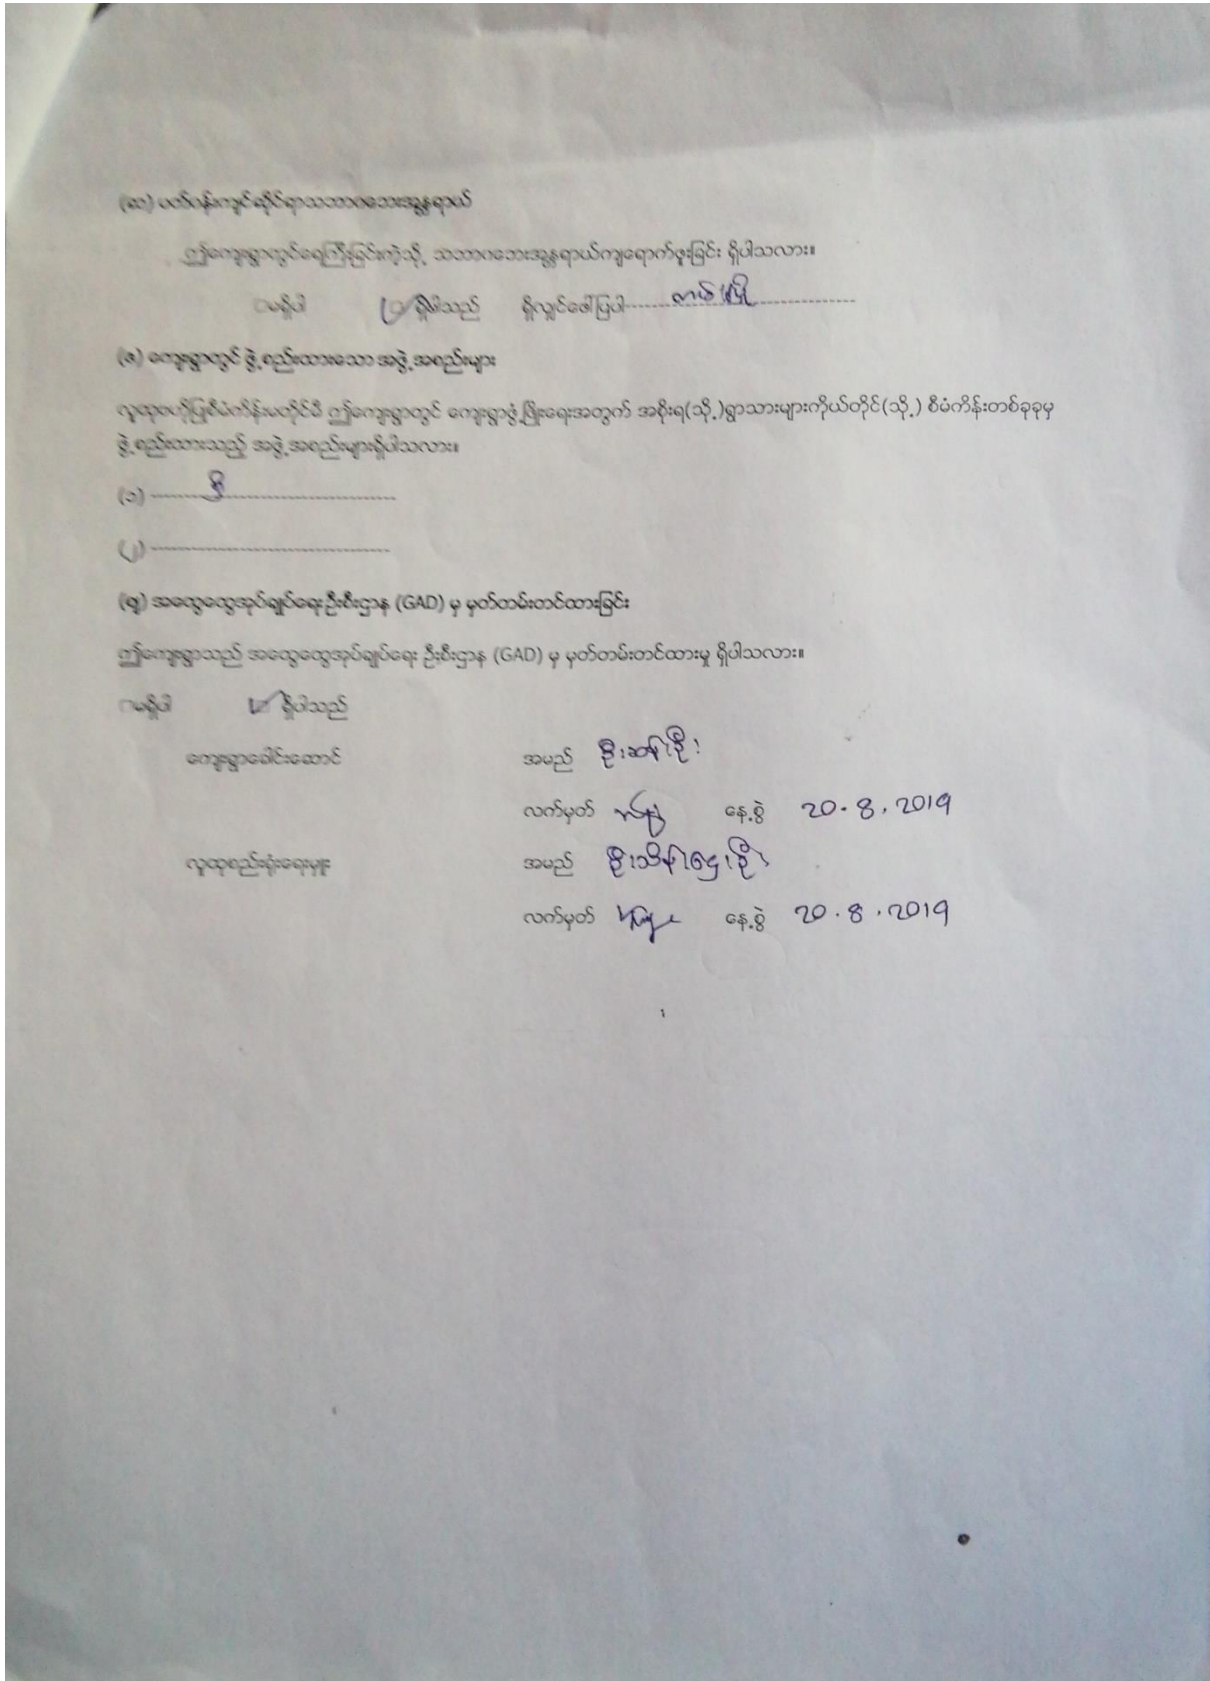 (ဆ) ပတ်ဝန်းကျင်ဆိုင်ရာသဘာဝဘေးအန္တရာယ်
ဤကျေးရွာတွင်ရေကြီးခြင်းကဲ့သို့ သဘာဝဘေးအန္တရာယ်ကျရောက်ဖူးခြင်း ရှိပါသလား။
မရှိပါ ရှိပါသည် ရှိလျှင်ဖေါ်ပြပါ
(ဇ) ကျေးရွာတွင် ဖွဲ့စည်းထားသော အဖွဲ့အစည်းများ
လူထုဗဟိုပြုစီမံကိန်းမတိုင်မီ ဤကျေးရွာတွင် ကျေးရွာဖွံ့ဖြိုးရေးအတွက် အစိုးရ(သို့)ရွာသားများကိုယ်တိုင်(သို့) စီမံကိန်းတစ်ခုခုမှ
ဖွဲ့စည်းထားသည့် အဖွဲ့အစည်းများရှိပါသလား။
(၁) ရှိ
(၂)
(ဈ) အထွေထွေအုပ်ချုပ်ရေးဦးစီးဌာန (GAD) မှ မှတ်တမ်းတင်ထားခြင်း
ဤကျေးရွာသည် အထွေထွေအုပ်ချုပ်ရေး ဦးစီးဌာန (GAD) မှ မှတ်တမ်းတင်ထားမှု ရှိပါသလား။
မရှိပါ ရှိပါသည်
ကျေးရွာခေါင်းဆောင် အမည် ဦးဆန်းဦး
လက်မှတ် နေ့စွဲ 20.8.2019
လူထုစည်းရုံးရေးမှူး အမည် ဦးသိန်းဌေးဦး
လက်မှတ် နေ့စွဲ 20.8.2019